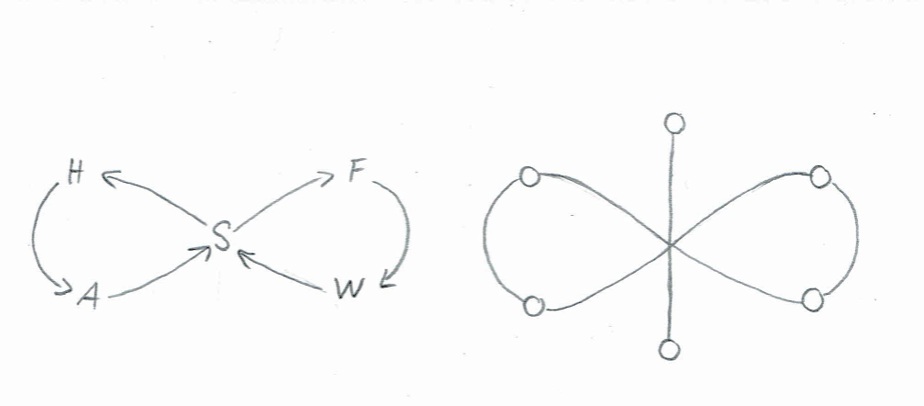 H F
S
A W